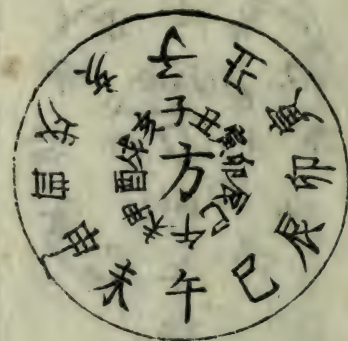 子丑寅卯辰巳午未申酉戌亥
子丑寅卯辰巳午未申酉戌亥
方